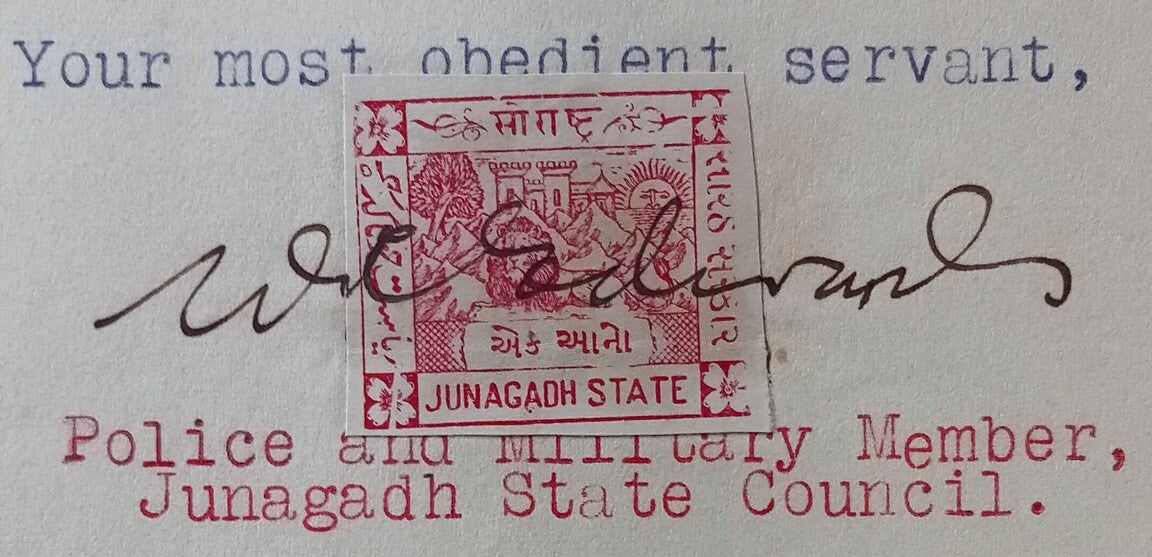 Your most obedient servant,
सोराष्ट्र
સોરઠ સરકાર
Edwards
એક આનો
JUNAGADH STATE
Police and Military Member,
Junagadh State Council.